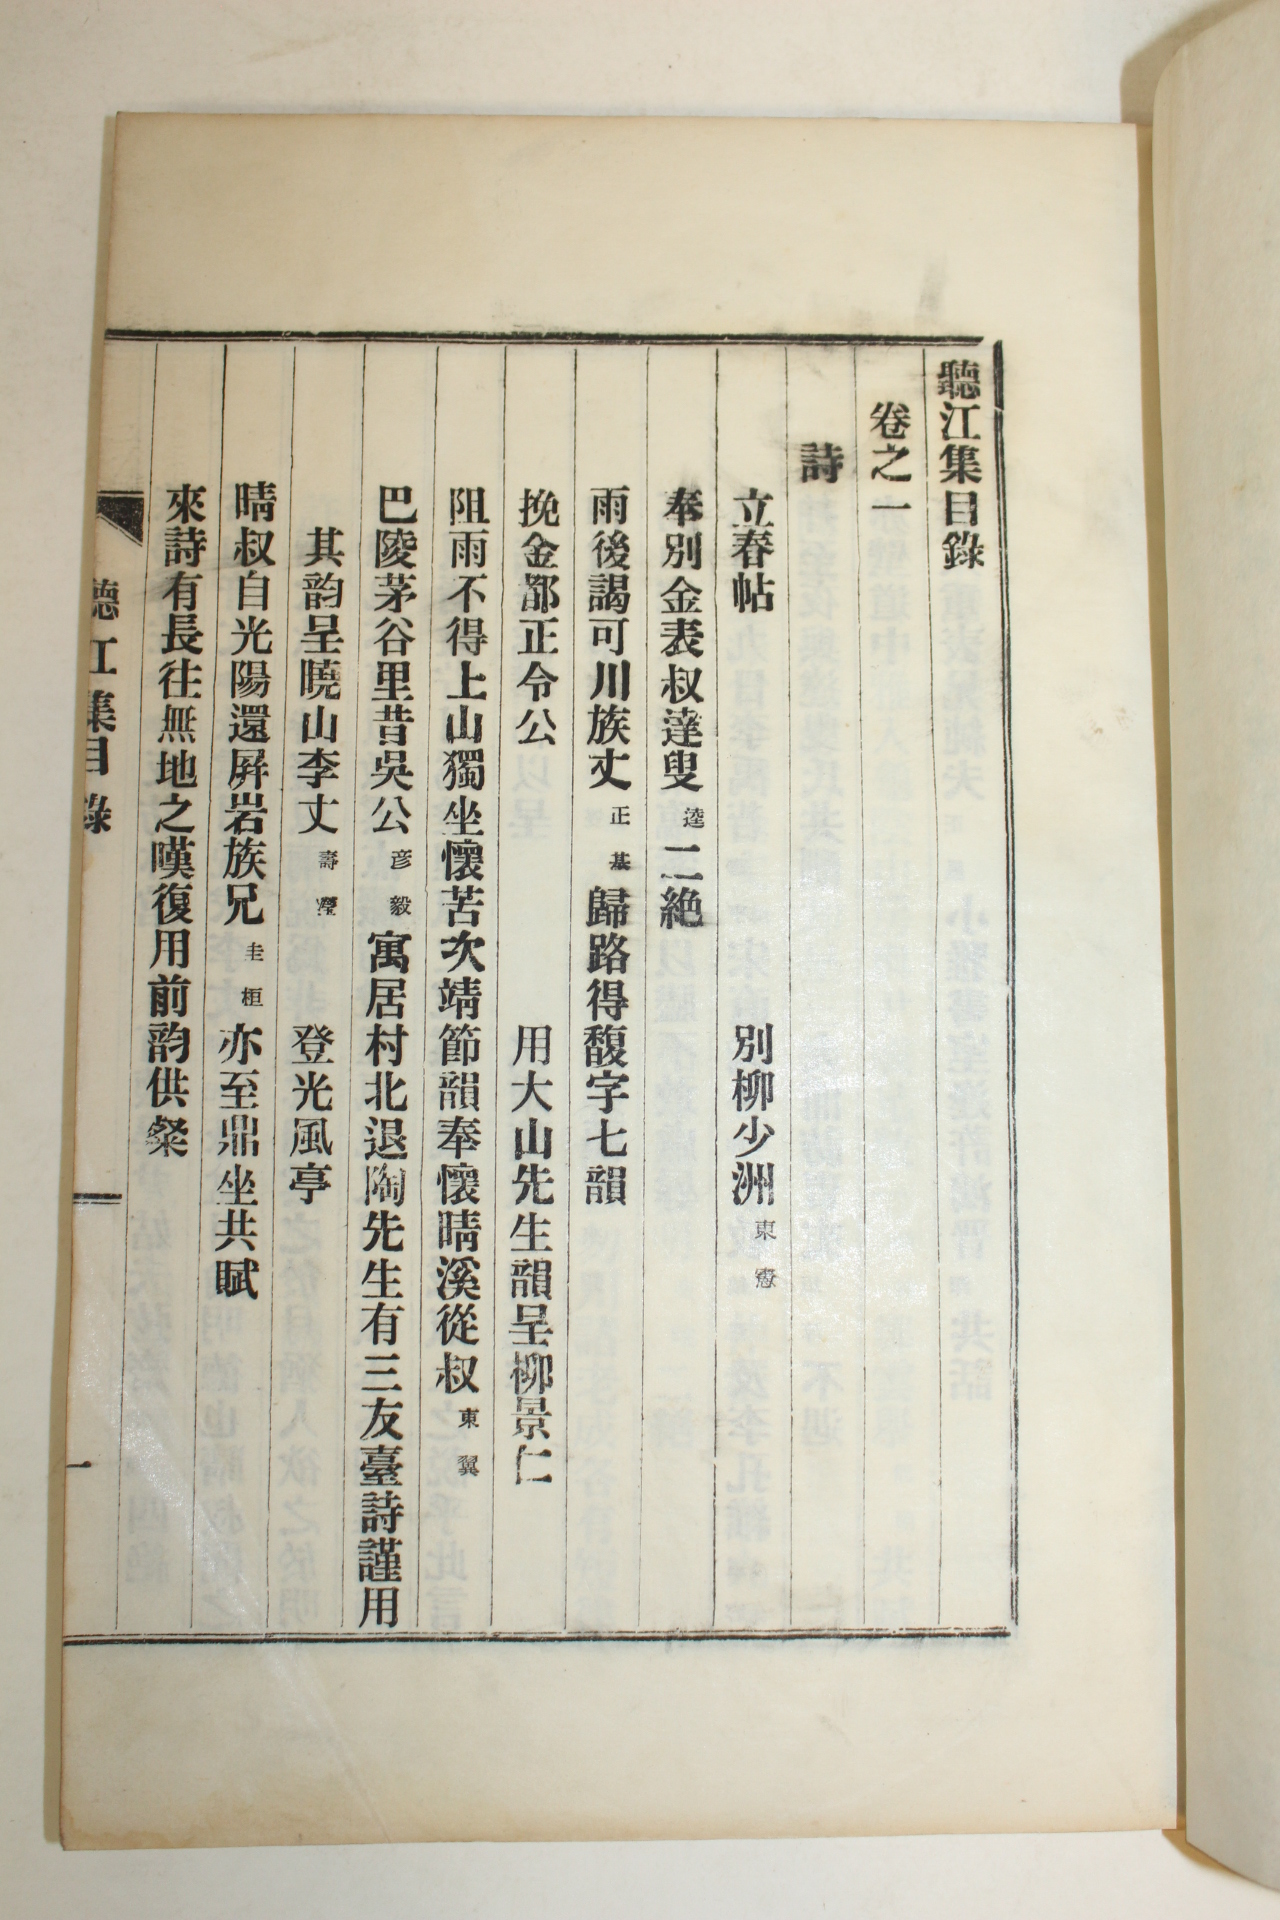 聽江集目錄
卷之一
詩
立春帖 別柳少洲東憲
奉別金表叔達叟逵二絶
雨後謁可川族丈正基歸路得馥字七韻
挽金都正令公 用大山先生韻呈柳景仁
阻雨不得上山獨坐懷苦次靖節韻奉懷晴溪從叔東翼
巴陵茅谷里昔吳公彦毅寓居村北退陶先生有三友臺詩謹用
其韵呈曉山李丈壽瀅 登光風亭
晴叔自光陽還屛岩族兄圭桓亦至鼎坐共賦
來詩有長往無地之嘆復用前韵供粲
聽江集目錄
一